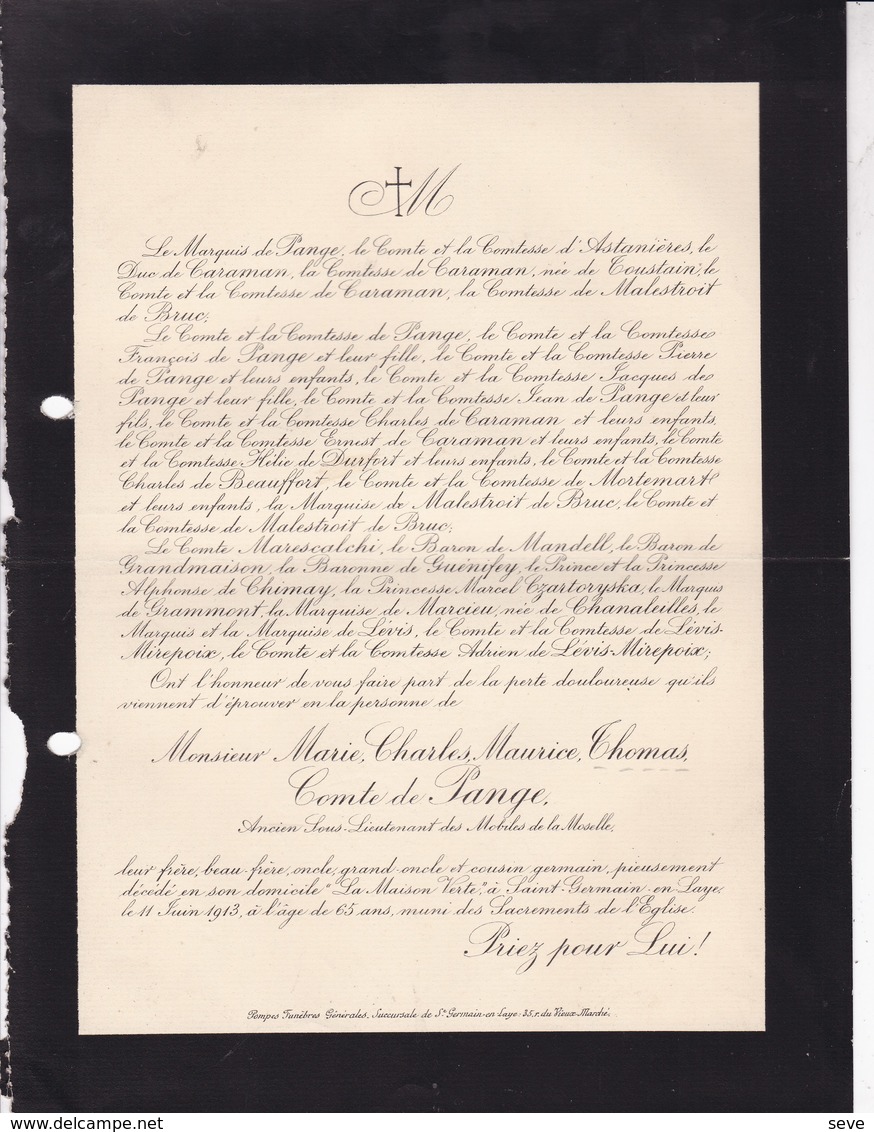 M
Le Marquis de Pange, le Comte et la Comtesse d'Astanières, le
Duc de Caraman, la Comtesse de Caraman, née de Toustain, le
Comte et la Comtesse de Caraman, la Comtesse de Malestroit
de Bruc;
Le Comte et la Comtesse de Pange, le Comte et la Comtesse
François de Pange et leur fille, le Comte et la Comtesse Pierre
de Pange et leurs enfants, le Comte et la Comtesse Jacques de
Pange et leur fille, le Comte et la Comtesse Jean de Pange et leur
fils, le Comte et la Comtesse Charles de Caraman et leurs enfants,
le Comte et la Comtesse Ernest de Caraman et leurs enfants, le Comte
et la Comtesse Hélie de Durfort et leurs enfants, le Comte et la Comtesse
Charles de Beauffort, le Comte et la Comtesse de Mortemart
et leurs enfants, la Marquise de Malestroit de Bruc, le Comte et
la Comtesse de Malestroit de Bruc;
Le Comte Marescalchi, le Baron de Mandell, le Baron de
Grandmaison, la Baronne de Guénifey, le Prince et la Princesse
Alphonse de Chimay, la Princesse Marcel Czartoryska, le Marquis
de Grammont, la Marquise de Marcieu, née de Chanaleilles, le
Marquis et la Marquise de Lévis, le Comte et la Comtesse de Lévis-
Mirepoix, le Comte et la Comtesse Adrien de Lévis-Mirepoix;
Ont l'honneur de vous faire part de la perte douloureuse qu'ils
viennent d'éprouver en la personne de
Monsieur Marie, Charles, Maurice, Thomas,
Comte de Pange,
Ancien Sous-Lieutenant des Mobiles de la Moselle,
leur frère, beau-frère, oncle, grand-oncle et cousin germain, pieusement
décédé en son domicile "La Maison Verte", à Saint-Germain-en-Laye,
le 11 Juin 1913, à l'âge de 65 ans, muni des Sacrements de l'Eglise.
Priez pour Lui!
Pompes Funèbres Générales. Succursale de St Germain-en-Laye: 35, r. du Vieux Marché.
seve